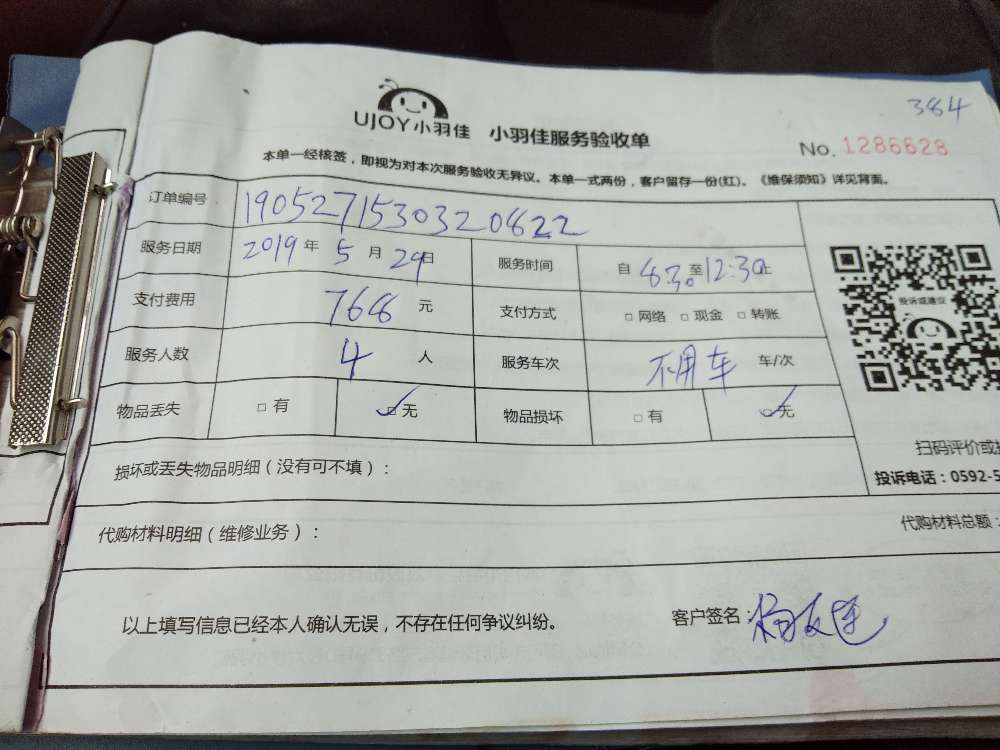 384
UJOY小羽佳 小羽佳服务验收单
No. 1286628
本单一经核签，即视为对本次服务验收无异议。本单一式两份，客户留存一份(红)。《维保须知》详见背面。
订单编号 1905271530320822
服务日期 2019年5月29日 服务时间 自8:30至12:30止
支付费用 768元 支付方式 □网络 □现金 □转账
服务人数 4人 服务车次 不用车 车/次
物品丢失 □有 ☑无 物品损坏 □有 ☑无
投诉或建议
扫码评价或
投诉电话：0592-5
损坏或丢失物品明细（没有可不填）：
代购材料明细（维修业务）： 代购材料总额：
以上填写信息已经本人确认无误，不存在任何争议纠纷。 客户签名：